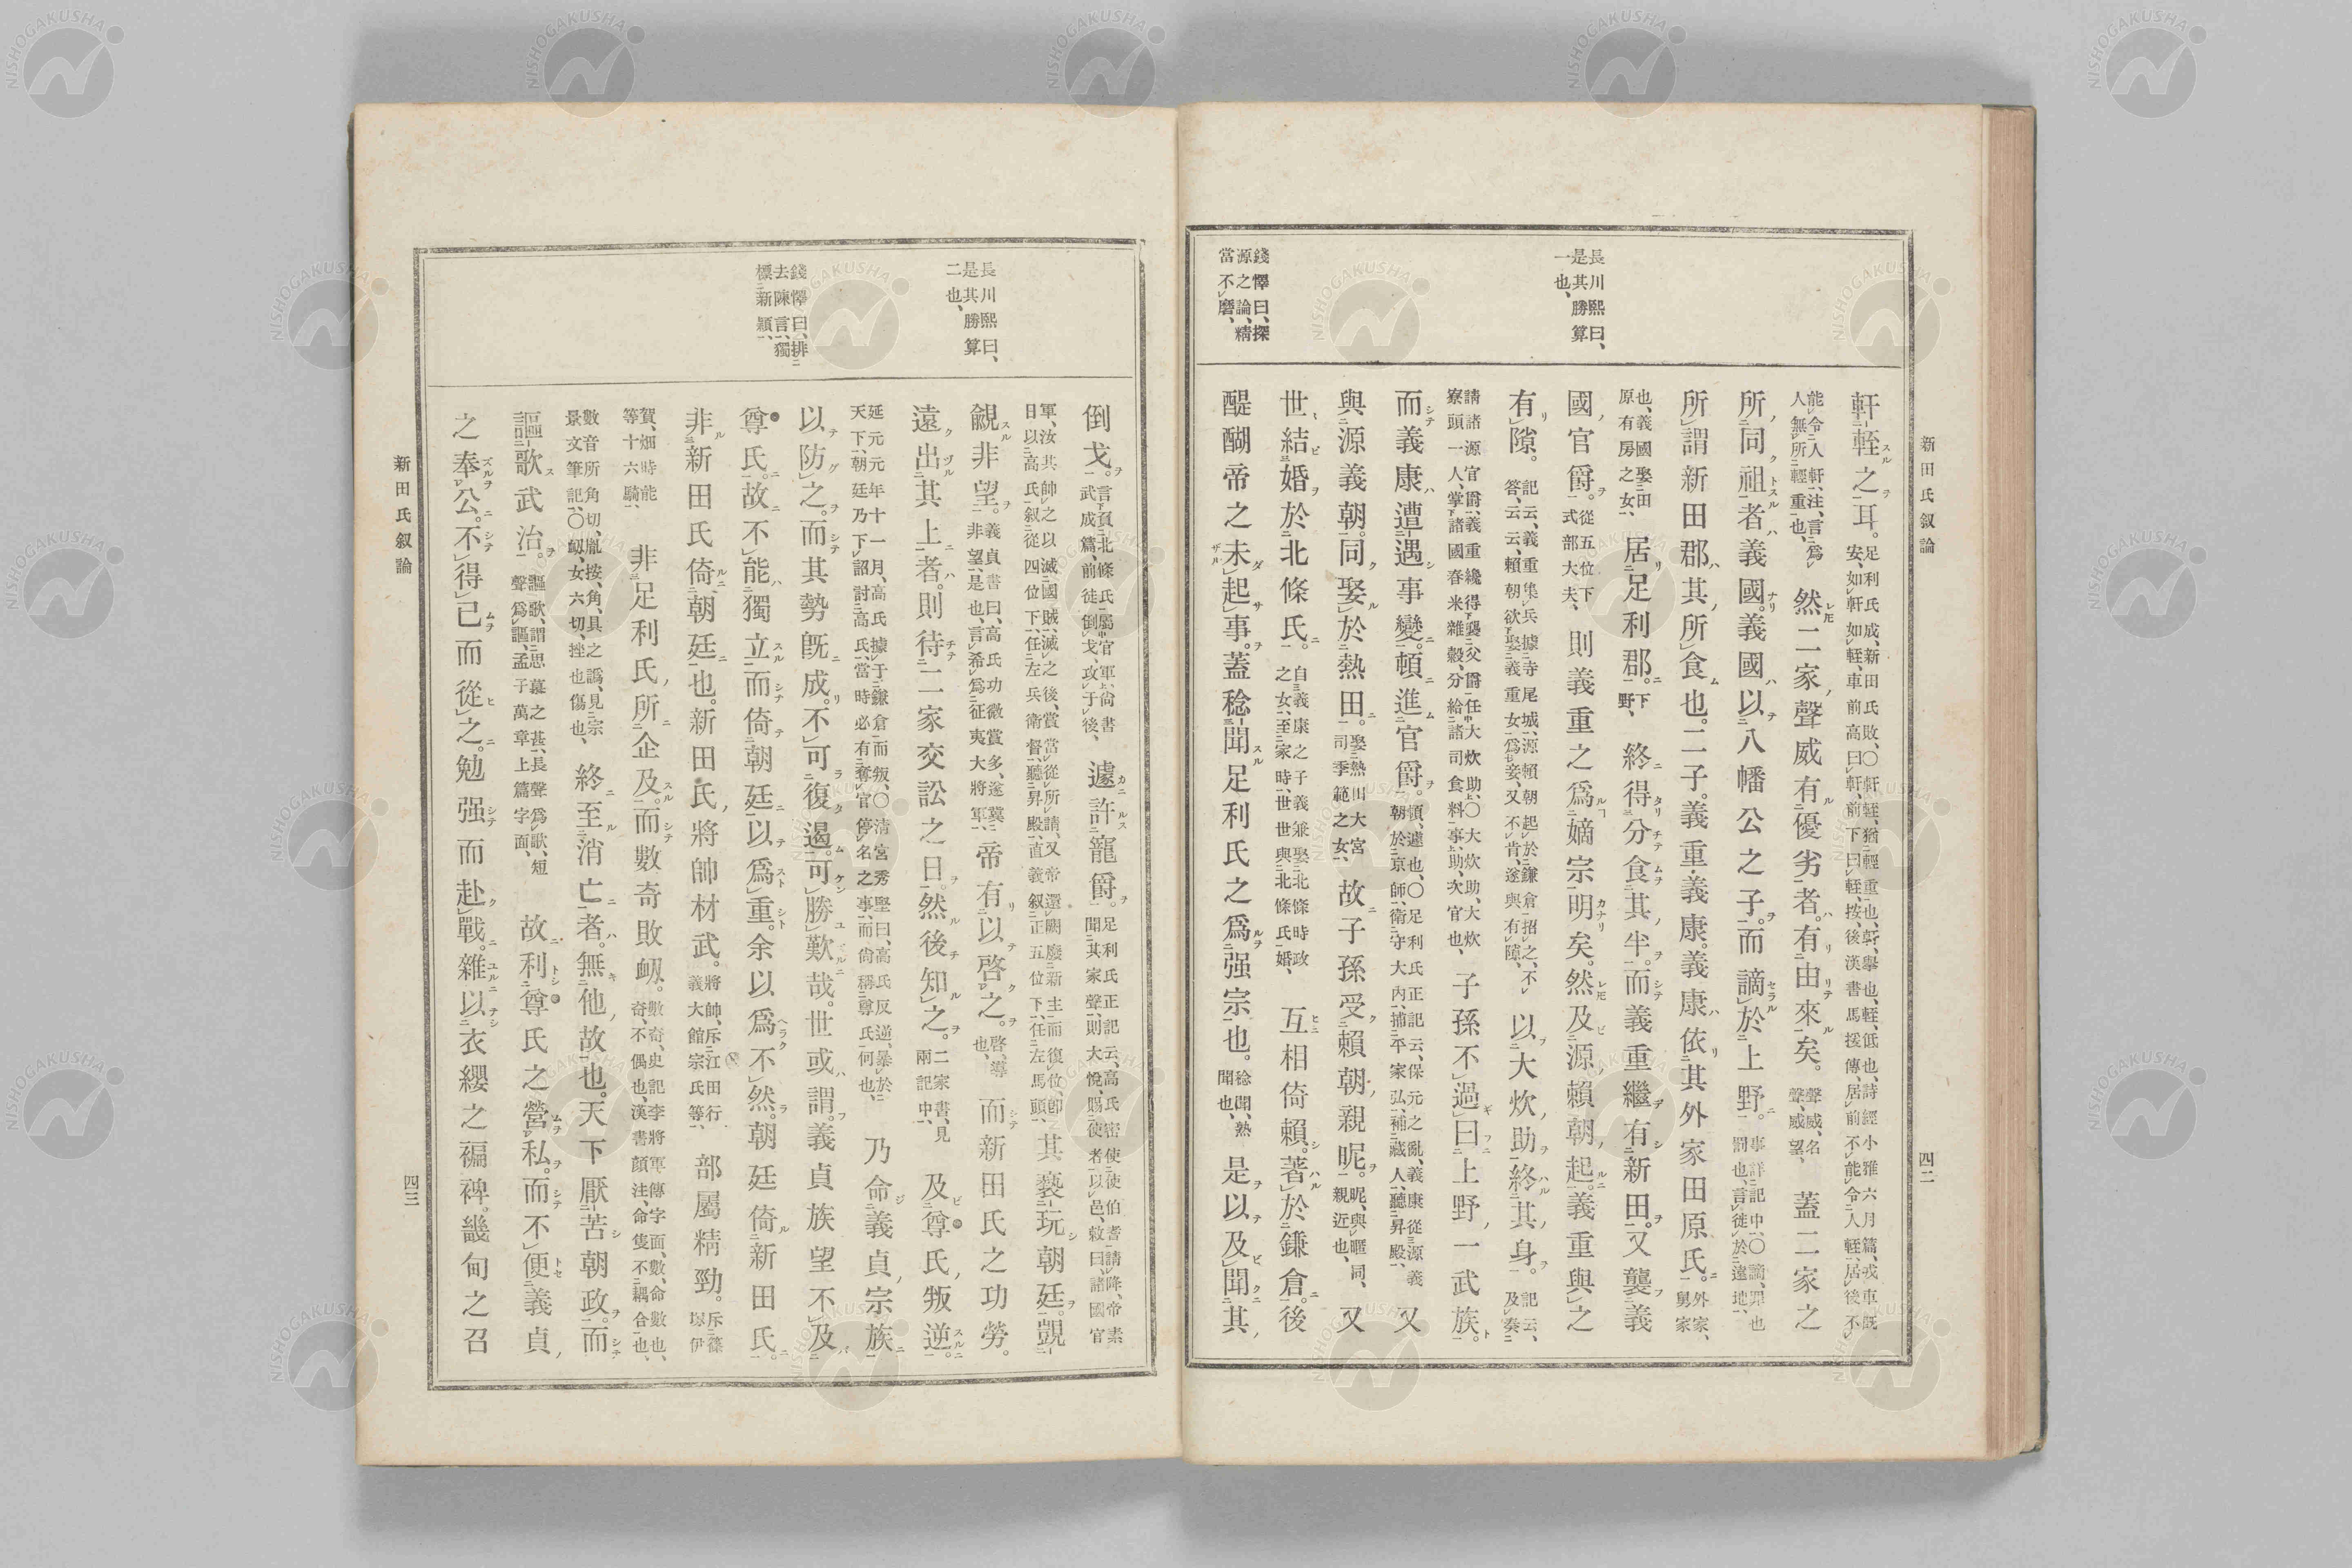 新田氏叙論
四二
長川熙曰、
是其勝算
一也、
錢懌曰、探
源之論、精
當不磨、
軒輊之耳。足利氏成、新田氏敗、〇軒輊、猶輕重也、軒、擧也、輊、低也、詩經小雅六月篇、戎車既安、如軒如輊、車前高曰軒、前下曰輊、按、後漢書馬援傳、居前不能令人輊、居後不
能令人軒、注、言爲人無所輕重也、然二家聲威有優劣者。有由來矣。聲威、名聲、威望、蓋二家之
所同祖者義國。義國以八幡公之子。而謫於上野。事詳記中、〇謫、罪也罰也、言徙於遠地、
所謂新田郡其所食也。二子。義重義康。義康依其外家田原氏。外家、舅家
也、義國娶田原有房之女、居足利郡。下野、終得分食其半。而義重繼有新田。又襲義
國官爵。從五位下式部大夫、則義重之爲嫡宗明矣。然及源賴朝起。義重與之
有隙。記云、義重集兵據寺尾城、源賴朝起於鎌倉招之、不答、云云、賴朝欲娶義重女爲妾、又不肯、遂與有隙、以大炊助終其身。記云、及奏
請諸源官爵、義重纔得襲父爵任大炊助、〇大炊助、大炊寮頭一人、掌諸國舂米雜穀、分給諸司食料事、助、次官也、子孫不過曰上野一武族。
而義康遭遇事變。頓進官爵。頓、遽也、〇足利氏正記云、保元之亂、義康從源義朝於京師、衛守大内、捕平家弘、補藏人、聽昇殿、又
與源義朝。同娶於熱田。娶熱田大宮司季範之女、故子孫受賴朝親昵。昵、與暱同、親近也、又
世結婚於北條氏。自義康之子義兼娶北條時政之女、至家時、世世與北條氏婚、互相倚賴。著於鎌倉。後
醍醐帝之未起事。蓋稔聞足利氏之爲强宗也。稔聞、熟聞也、是以及聞其
長川熙曰、
是其勝算
二也、
錢懌曰、排
去陳言、獨
標新穎、
倒戈。言負北條氏屬官軍、尚書武成篇、前徒倒戈、攻于後、遽許寵爵。足利氏正記云、高氏密使使伯耆請降、帝素聞其家聲、則大悅、賜使者以邑、敕曰、諸國官
軍、汝其帥之以滅國賊、滅之後、賞當從所請、又帝還闕、廢新主而復位、卽日以高氏叙從四位下、任左兵衛督、聽昇殿、直義叙正五位下、任左馬頭、其褻玩朝廷。覬
覦非望。義貞書曰、高氏功微賞多、遂冀非望、是也、言希爲征夷大將軍、帝有以啓之。啓、導也、而新田氏之功勞。
遠出其上者。則待二家交訟之日。然後知之。二家書、見兩記中、及尊氏叛逆。
延元元年十一月、高氏據于鎌倉而叛、〇清宮秀堅曰、高氏反逆、暴於天下、朝廷乃下詔討高氏、當時必有奪官停名之事、而尙稱尊氏何也、乃命義貞宗族
以防之。而其勢旣成。不可復遏。可勝歎哉。世或謂。義貞族望不及
尊氏。故不能獨立而倚朝廷以爲重。余以爲不然。朝廷倚新田氏。
非新田氏倚朝廷也。新田氏將帥材武。將帥、斥江田行義大館宗氏等、部屬精勁。斥篠塚伊
賀、畑時能等十六騎、非足利氏所企及。而數奇敗衂。數奇、史記李將軍傳字面、數、命數也、奇、不偶也、漢書顏注、命隻不耦合也、
數音所角切、胤按、角、具之譌、見宗景文筆記、〇衂、女六切、挫也傷也、終至消亡者。無他故也。天下厭苦朝政。而
謳歌武治。謳歌、謂思慕之甚、長聲爲歌、短聲爲謳、孟子萬章上篇字面、故利尊氏之營私。而不便義貞
之奉公。不得已而從之。勉强而赴戰。雜以衣纓之褊裨。畿甸之召
新田氏叙論
四三